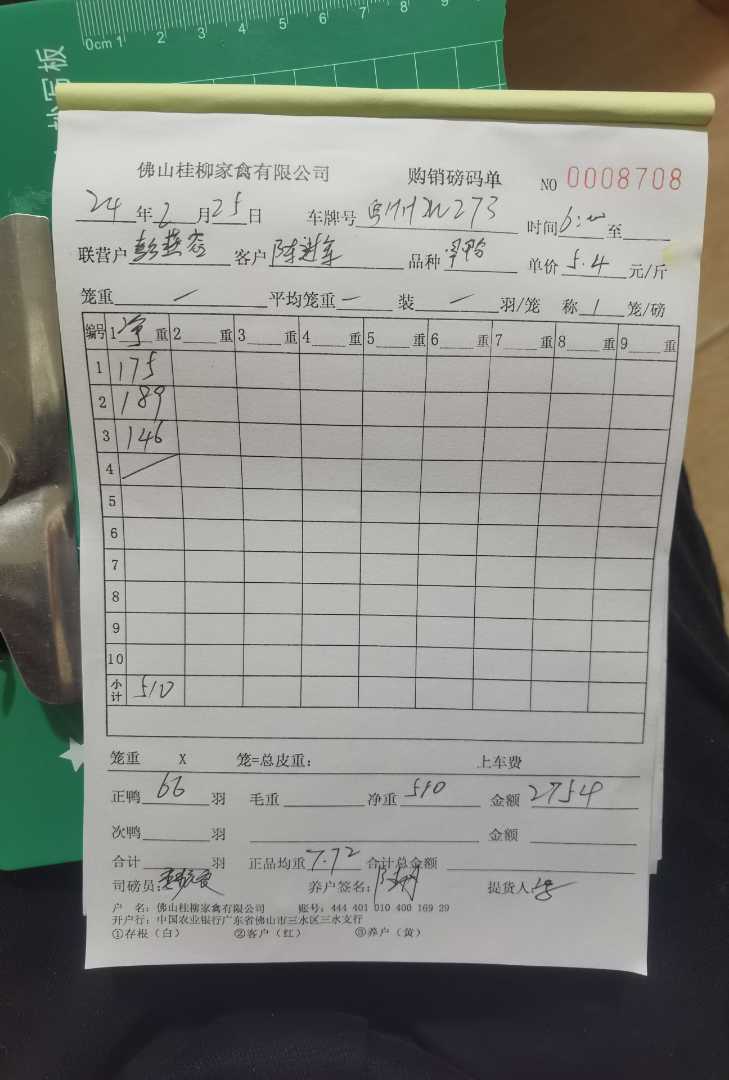 0cm 1 2 3 4 5 6 7 8 9
写板
佛山桂柳家禽有限公司 购销磅码单 NO 0008708
24年2月25日 车牌号 273 时间6: 至
联营户 客户 陈进军 品种 单价 5.4 元/斤
笼重 — 平均笼重 — 装 — 羽/笼 称 1 笼/磅
编号 1净重 2 重 3 重 4 重 5 重 6 重 7 重 8 重 9 重
1 175
2 189
3 146
4
5
6
7
8
9
10
小计 510
笼重 X 笼=总皮重: 上车费
正鸭 66 羽 毛重 净重 510 金额 2754
次鸭 羽 金额
合计 羽 正品均重 7.72 合计总金额
司磅员: 养户签名: 提货人:
户 名: 佛山桂柳家禽有限公司 账号: 444 401 010 400 169 29
开户行: 中国农业银行广东省佛山市三水区三水支行
①存根(白) ②客户(红) ③养户(黄)